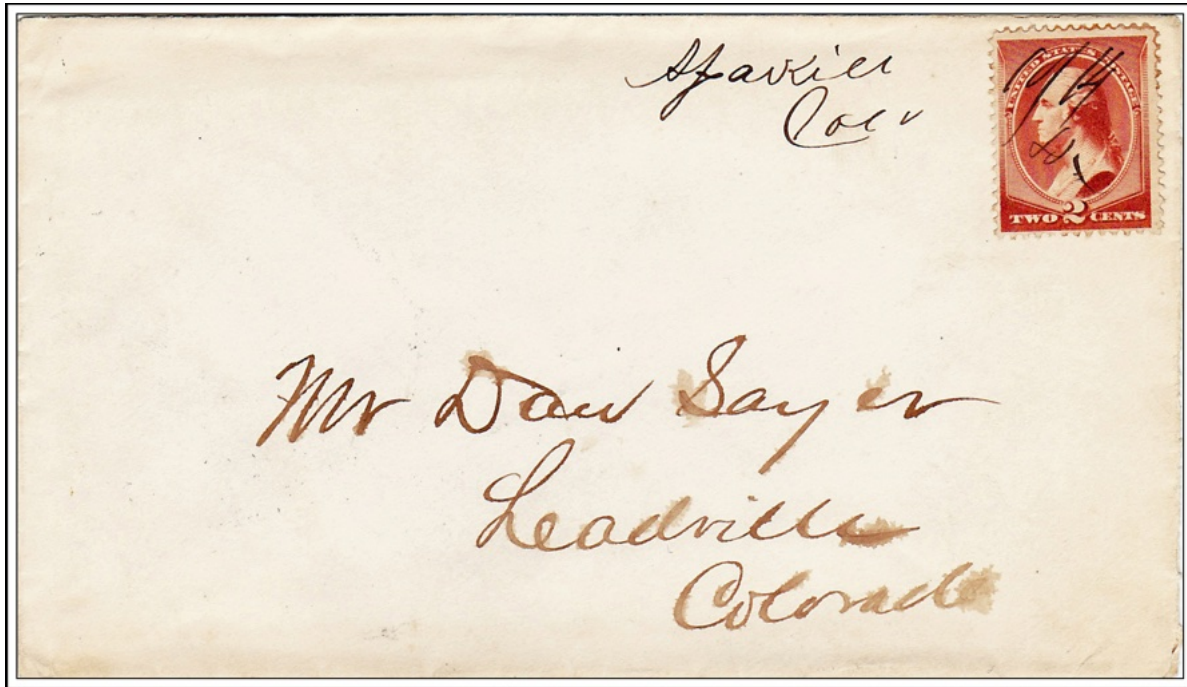 Sparkill
Colo
UNITED STATES POSTAGE
TWO 2 CENTS
Mr Dan Sayer
Leadville
Colorado